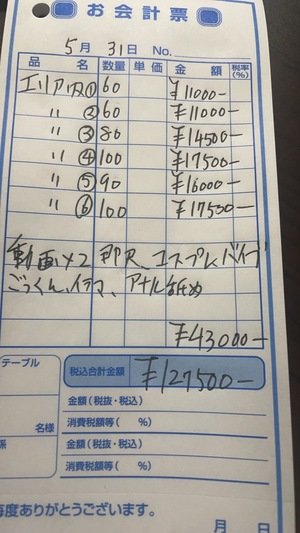 お会計票
5月 31日 No.
品 名 数量 単価 金 額 税率(%)
エリアス① 60 ¥11000-
〃 ② 60 ¥11000-
〃 ③ 80 ¥14500-
〃 ④ 100 ¥17500-
〃 ⑤ 90 ¥16000-
〃 ⑥ 100 ¥17500-
動画×2 即尺、コスプレバイブ
ごっくん、イラマ、アナル舐め
¥43000-
テーブル 税込合計金額 ¥127500-
金額(税抜・税込)
名様 消費税額等( %)
係 金額(税抜・税込)
消費税額等( %)
再度ありがとうございます。
月 日